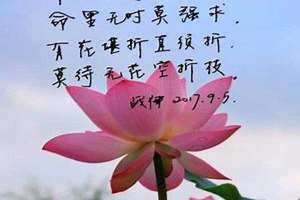 命里无时莫强求.
有花堪折直须折.
莫待无花空折枝.
2017.9.5.